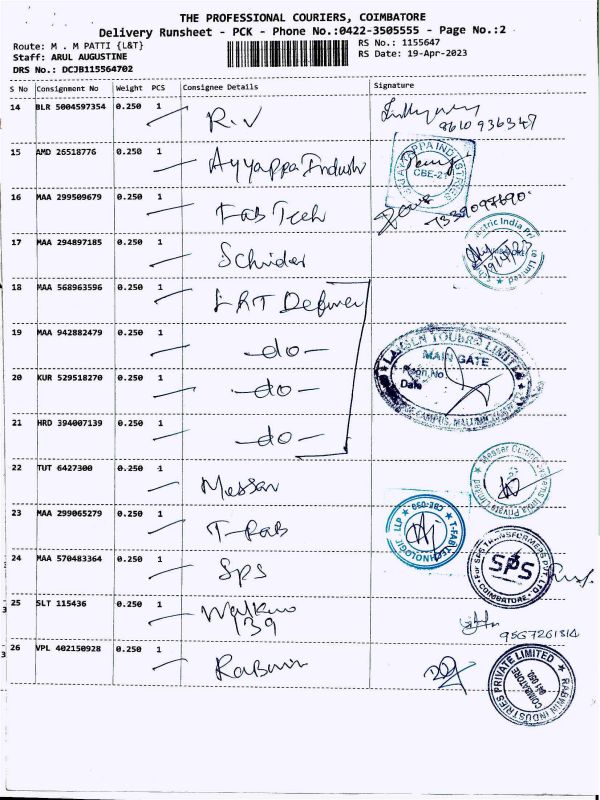 THE PROFESSIONAL COURIERS, COIMBATORE
Delivery Runsheet - PCK - Phone No.:0422-3505555 - Page No.:2
Route: M . M PATTI {L&T}
RS No.: 1155647
Staff: ARUL AUGUSTINE
RS Date: 19-Apr-2023
DRS No.: DCJB115564702
S No Consignment No Weight PCS Consignee Details Signature
14 BLR 5004597354 0.250 1 R.V
8610936347
15 AMD 26518776 0.250 1 Ayyappa Industr
AYYAPPA INDUSTRIES
CBE-21
16 MAA 299509679 0.250 1 Fab Tech
7339097690
17 MAA 294897185 0.250 1 Schider
Electric India Pri
19/4/23
Limited
18 MAA 568963596 0.250 1 L&T Defence
19 MAA 942882479 0.250 1 -do-
LARSEN TOUBRO LIMITED
MAIN GATE
Date
CAMPUS,
20 KUR 529518270 0.250 1 -do-
21 HRD 394007139 0.250 1 -do-
22 TUT 6427300 0.250 1 Messar
Messer Cutting Systems India Private Limited
23 MAA 299065279 0.250 1 T-Fab
T-FAB TECHNOLOGIC LLP
CBE-050
24 MAA 570483364 0.250 1 SPS
For SPS TRANSFORMERS PVT. LTD
SPS
COIMBATORE
25 SLT 115436 0.250 1
139
9567261314
26 VPL 402150928 0.250 1 Rabwin
RABWIN INDUSTRIES PRIVATE LIMITED
COIMBATORE